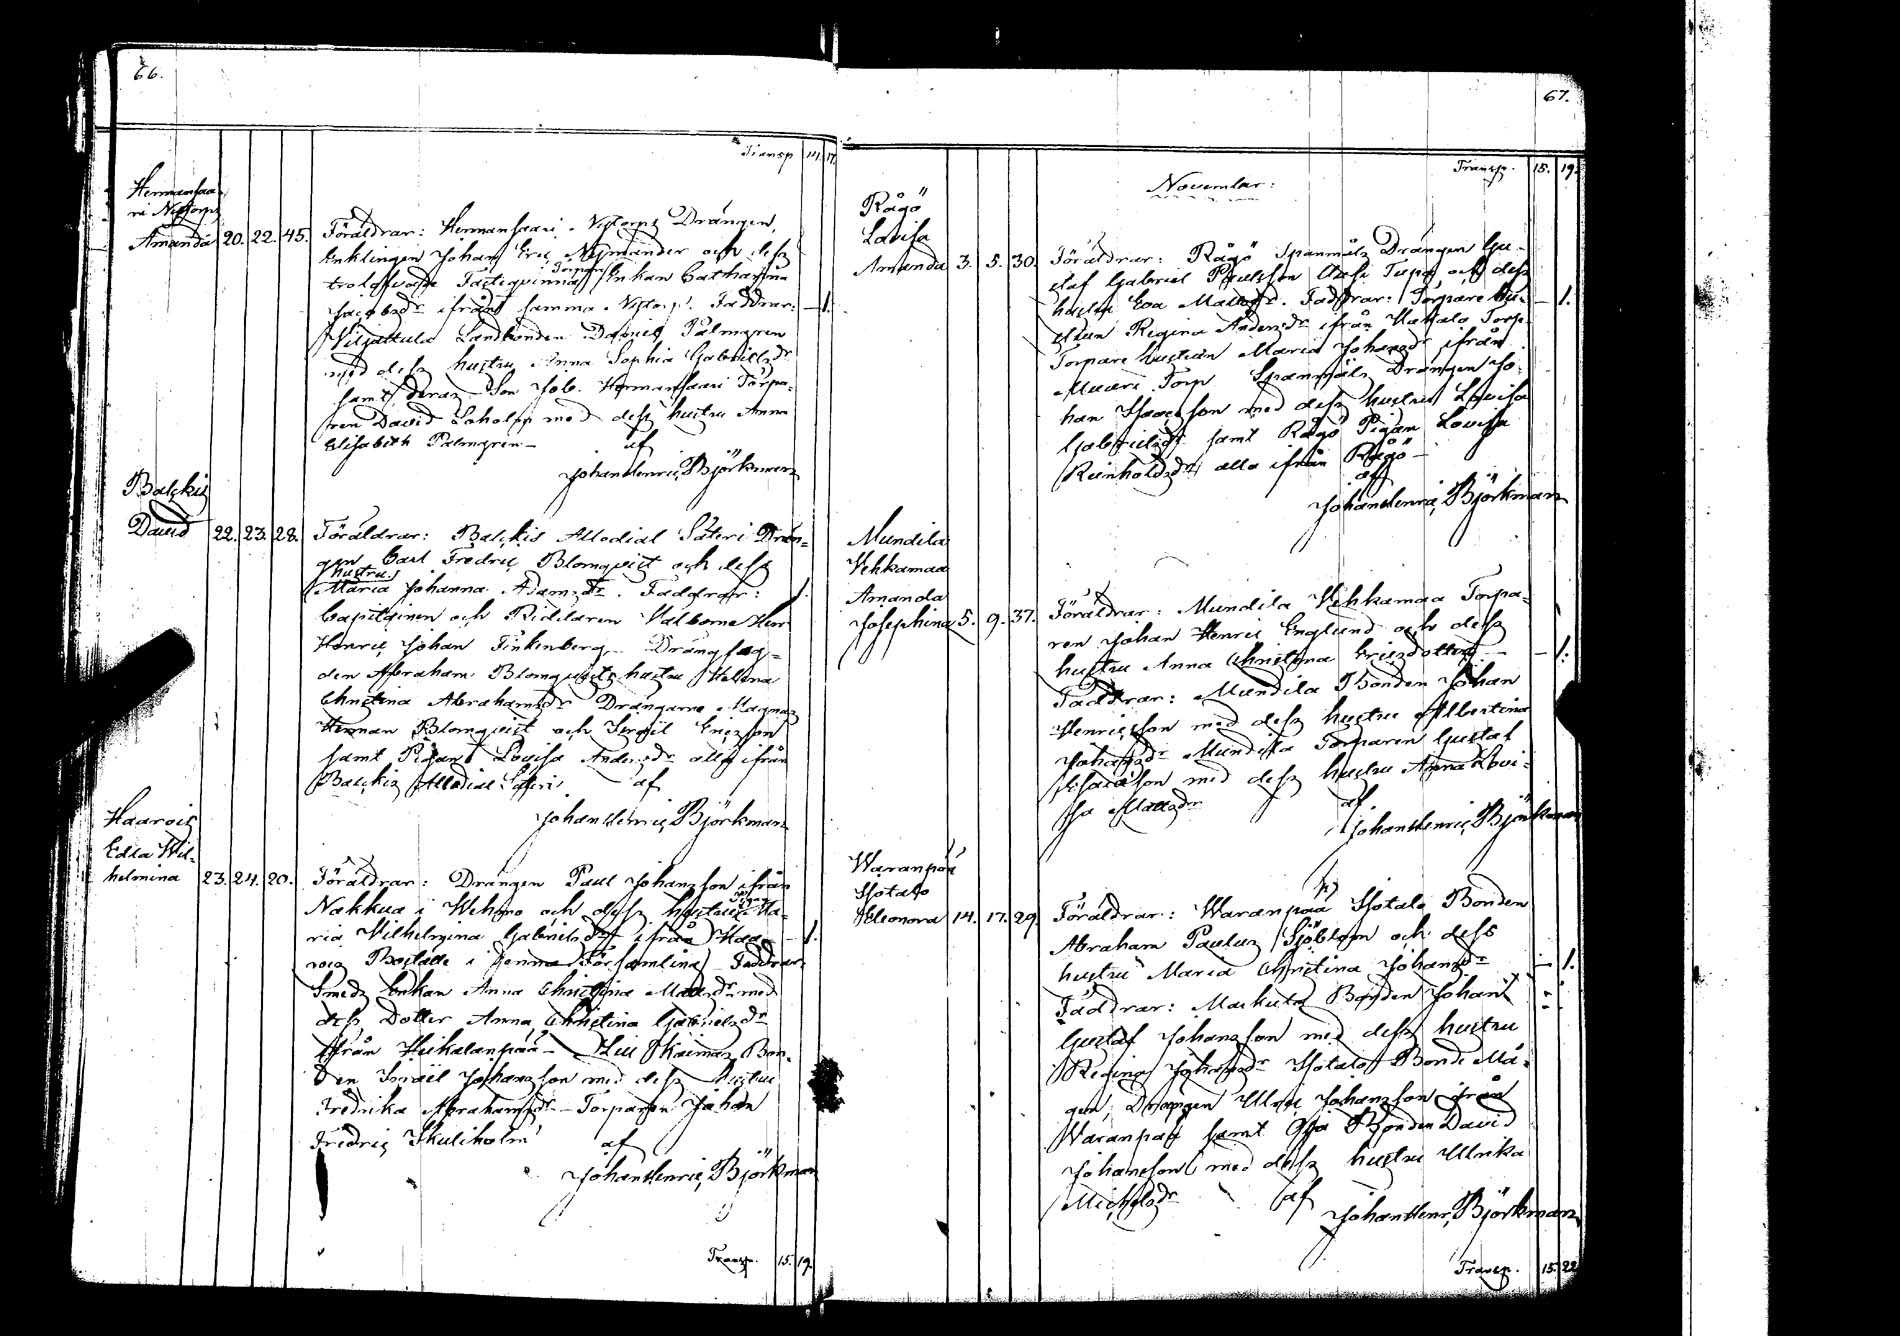 66.
Transp 14. 17.
Hermansaa-
ri Nystorps
Amanda 20. 22. 45. Föräldrar: Hermansaari Nystorps Drängen,
Enklingen Johan Eric Nymander och dess
Torpare Enkan Catharina
Jacobsdr ifrån samma Nytorp. Faddrar: — 1.
Viljattula Landbonden Daniel Palmgren
med dess hustru Anna Sophia Gabrielsdr
samt deras Son Job. Hermansaari Torpa-
ren David med dess hustru Anna
Elisabeth Palmgren — af
Johan Henric Björkman
Balckis
David 22. 23. 28. Föräldrar: Balckis Allodial Säteri Drän-
gen Carl Fredric Blomqvist och dess
hustru
Maria Johanna Adamsdr. Faddrar: 1.
Capitainen och Riddaren Välborne Herr
Henric Johan Finkenberg — Drängfog-
den Abraham Blomqvists hustru Helena
Christina Abrahamsdr Drängarne Magnus
Herman Blomqvist och Israël Ericsson
samt Pigan Lovisa Andersdr alla ifrån
Balckis Allodial Säteri. af
Johan Henric Björkman
Haarois
Edla Wil-
helmina 23. 24. 20. Föräldrar: Drängen Paul Johansson ifrån
Nakkua i Wehmo och dess hustru Ma-
ria Vilhelmina Gabrielsdr ifrån Haa- — 1.
rois Boställe i denna Församling Faddrar:
Smeds Enkan Anna Christina Mattsdr med
dess Dotter Anna Christina Gabrielsdr
ifrån Huikalanpää — Bon-
den Israël Johansson med dess hustru
Fredrika Abrahamsdr — Torparen Johan
Fredric Skuliholm af
Johan Henric Björkman
Transp. 15. 19.
67.
Transp. 15. 19.
November:
Rågö
Lovisa
Amanda 3. 5. 30. Föräldrar: Rågö Spanmåls Drängen Gu-
staf Gabriel Paulsson och dess
hustru Eva Mattsdr. Faddrar: Torpare hu- — 1.
strun Regina Andersdr ifrån Torp
Torpare hustrun Maria Johansdr ifrån
Torp Spanmåls Drängen Jo-
han Isacsson med dess hustru Lovisa
Gabrielsdr samt Rågö Pigan Lovisa
Reinholdsdr alla ifrån Rågö —
af
Johan Henric Björkman
Mundila
Vehkamaa
Amanda
Josephina 5. 9. 37. Föräldrar: Mundila Vehkamaa Torpa-
ren Johan Henric Englund och dess
hustru Anna Christina Ericsdotter — 1.
Faddrar: Mundila Bonden Johan
Henricsson med dess hustru Albertina
Johansdr Mundila Torparen Gustaf
Isaacsson med dess hustru Anna Lovi-
sa Mattsdr af
Johan Henric Björkman
Waranpää
Isotalo
Eleonora 14. 17. 29. Föräldrar: Waranpää Isotalo Bonden
Abraham Paulus Sjöblom och dess
hustru Maria Christina Johansdr — 1.
Faddrar: Markula Bonden Johan
Gustaf Johansson med dess hustru
Regina Johansdr Isotalo Bonde Må-
gen, Drängen Ulric Johansson ifrån
Waranpää samt Oja Bonden David
Johansson med dess hustru Ulrika
Michelsdr af
Johan Henr. Björkman
Transp. 15. 22.